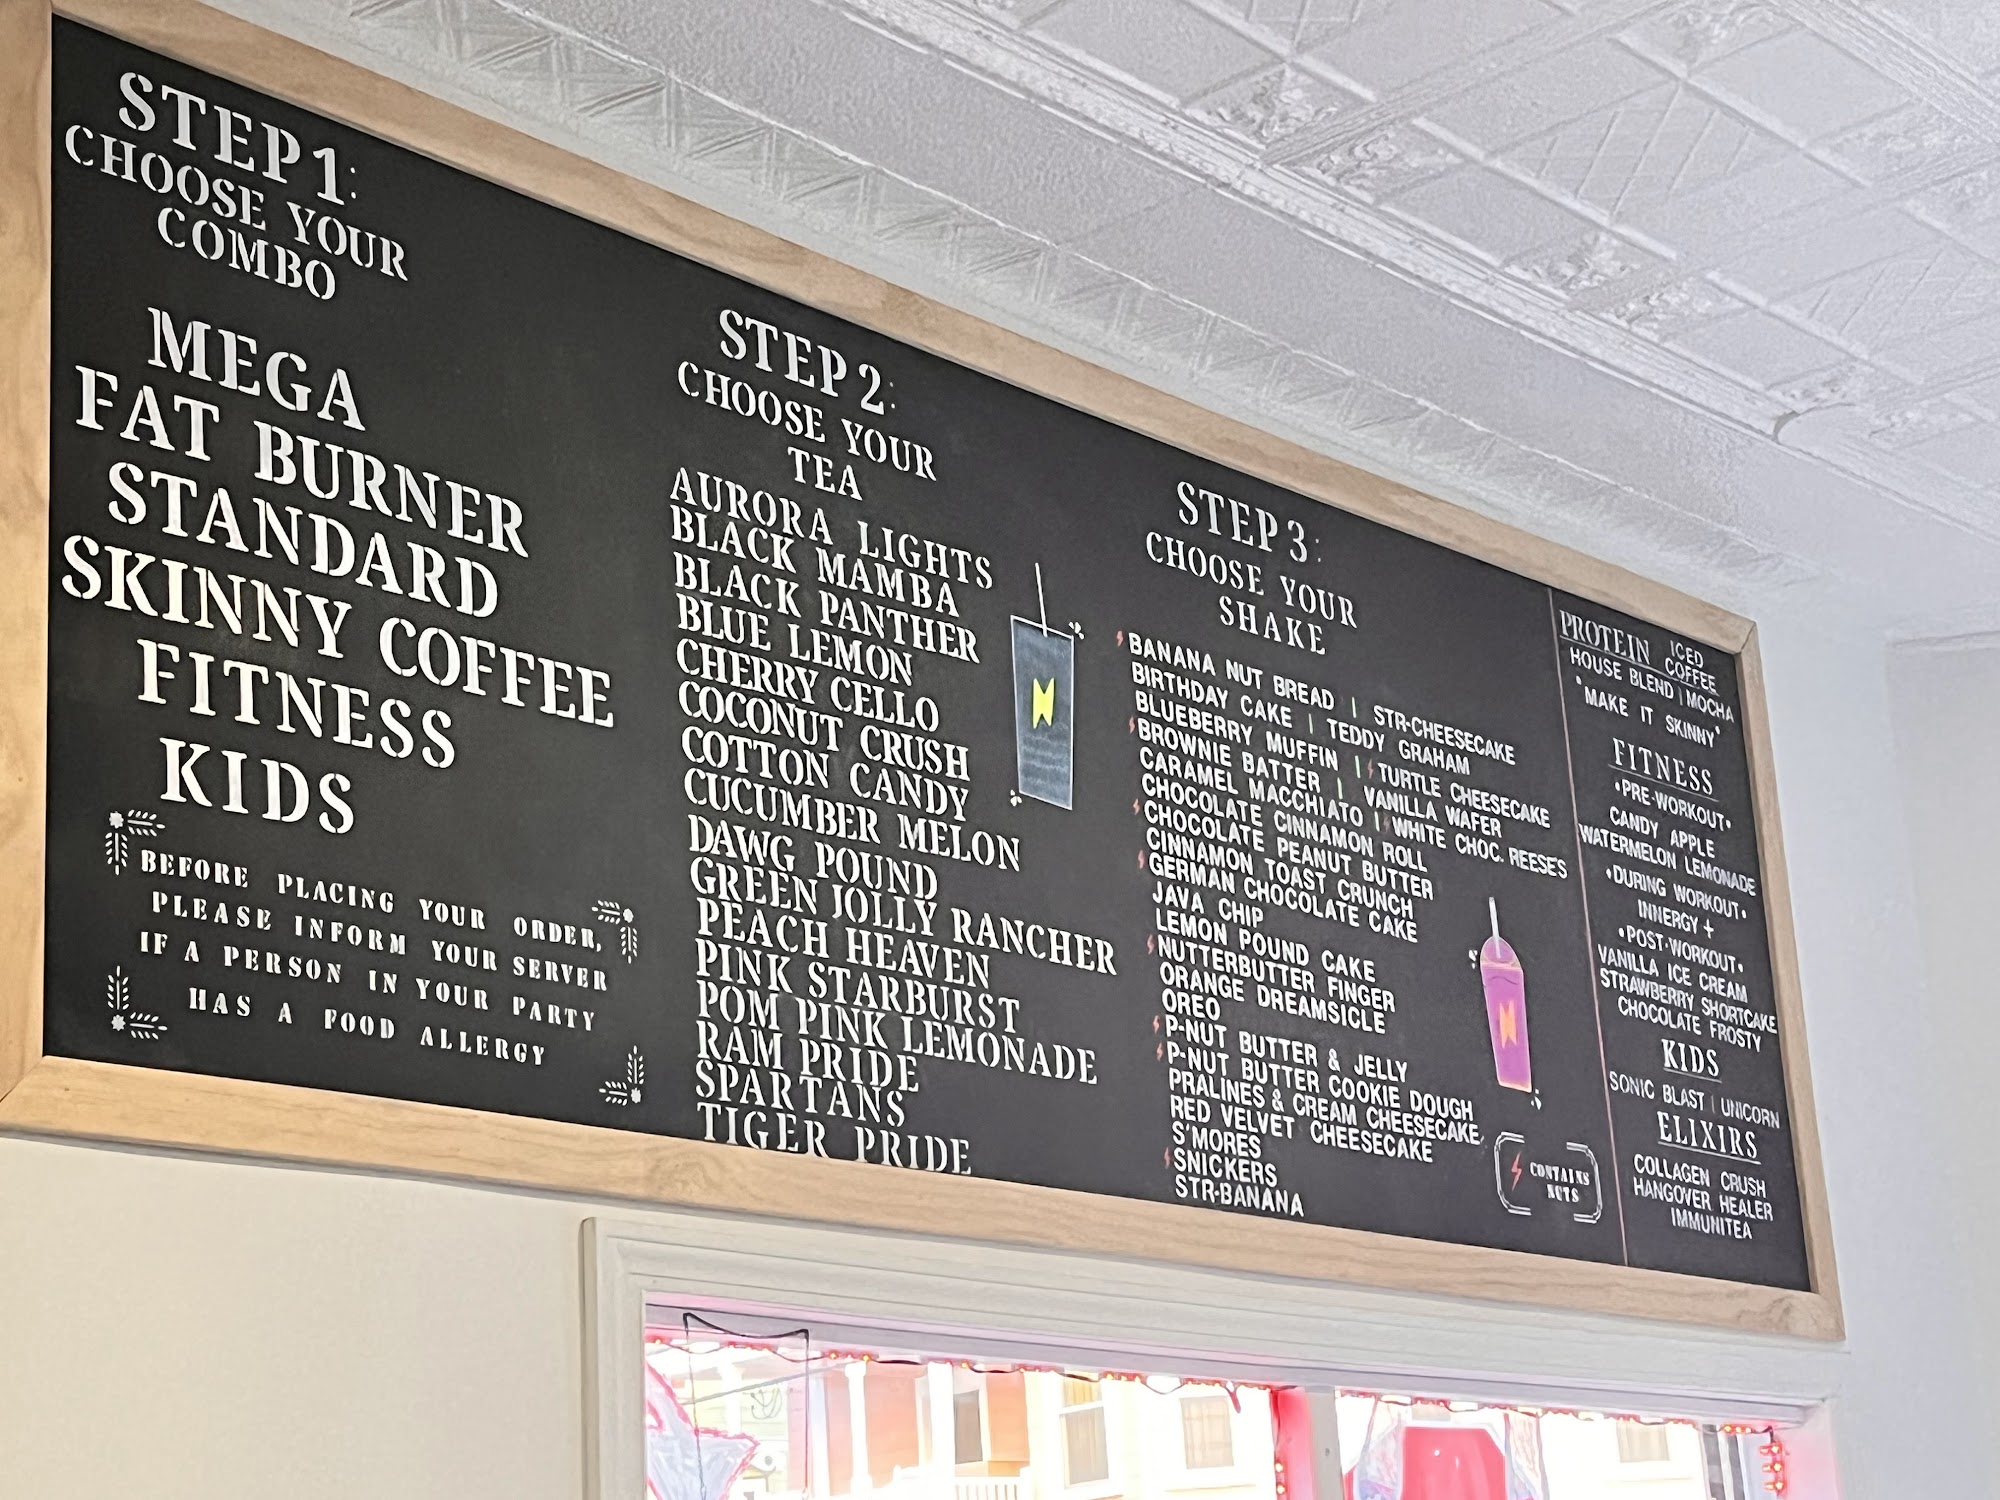 STEP 1:
CHOOSE YOUR
COMBO
MEGA
FAT BURNER
STANDARD
SKINNY COFFEE
FITNESS
KIDS
BEFORE PLACING YOUR ORDER,
PLEASE INFORM YOUR SERVER
IF A PERSON IN YOUR PARTY
HAS A FOOD ALLERGY
STEP 2:
CHOOSE YOUR
TEA
AURORA LIGHTS
BLACK MAMBA
BLACK PANTHER
BLUE LEMON
CHERRY CELLO
COCONUT CRUSH
COTTON CANDY
CUCUMBER MELON
DAWG POUND
GREEN JOLLY RANCHER
PEACH HEAVEN
PINK STARBURST
POM PINK LEMONADE
RAM PRIDE
SPARTANS
TIGER PRIDE
STEP 3:
CHOOSE YOUR
SHAKE
BANANA NUT BREAD | STR-CHEESECAKE
BIRTHDAY CAKE | TEDDY GRAHAM
BLUEBERRY MUFFIN | TURTLE CHEESECAKE
BROWNIE BATTER | VANILLA WAFER
CARAMEL MACCHIATO | WHITE CHOC. REESES
CHOCOLATE CINNAMON ROLL
CHOCOLATE PEANUT BUTTER
CINNAMON TOAST CRUNCH
GERMAN CHOCOLATE CAKE
JAVA CHIP
LEMON POUND CAKE
NUTTERBUTTER FINGER
ORANGE DREAMSICLE
OREO
P-NUT BUTTER & JELLY
P-NUT BUTTER COOKIE DOUGH
PRALINES & CREAM CHEESECAKE
RED VELVET CHEESECAKE
S'MORES
SNICKERS
STR-BANANA
CONTAINS
NUTS
PROTEIN ICED COFFEE
HOUSE BLEND | MOCHA
*MAKE IT SKINNY*
FITNESS
•PRE-WORKOUT•
CANDY APPLE
WATERMELON LEMONADE
•DURING WORKOUT•
INNERGY +
•POST-WORKOUT•
VANILLA ICE CREAM
STRAWBERRY SHORTCAKE
CHOCOLATE FROSTY
KIDS
SONIC BLAST | UNICORN
ELIXIRS
COLLAGEN CRUSH
HANGOVER HEALER
IMMUNITEA